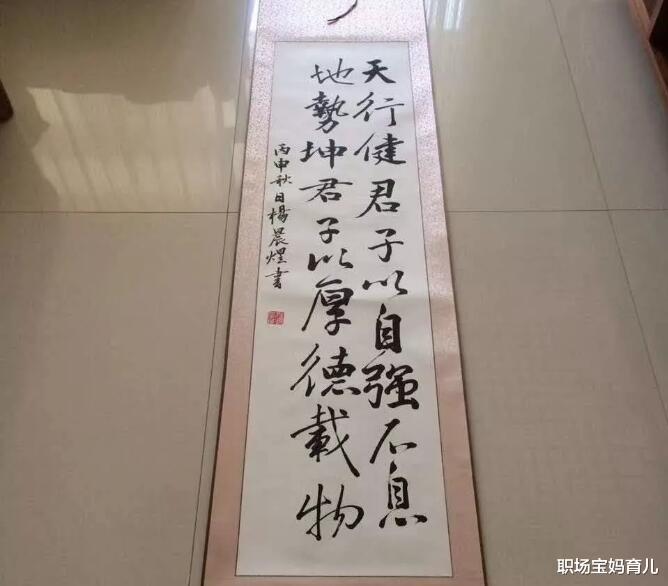 天行健君子以自强不息
地勢坤君子以厚德載物
丙申秋日楊晨煜書
职场宝妈育儿